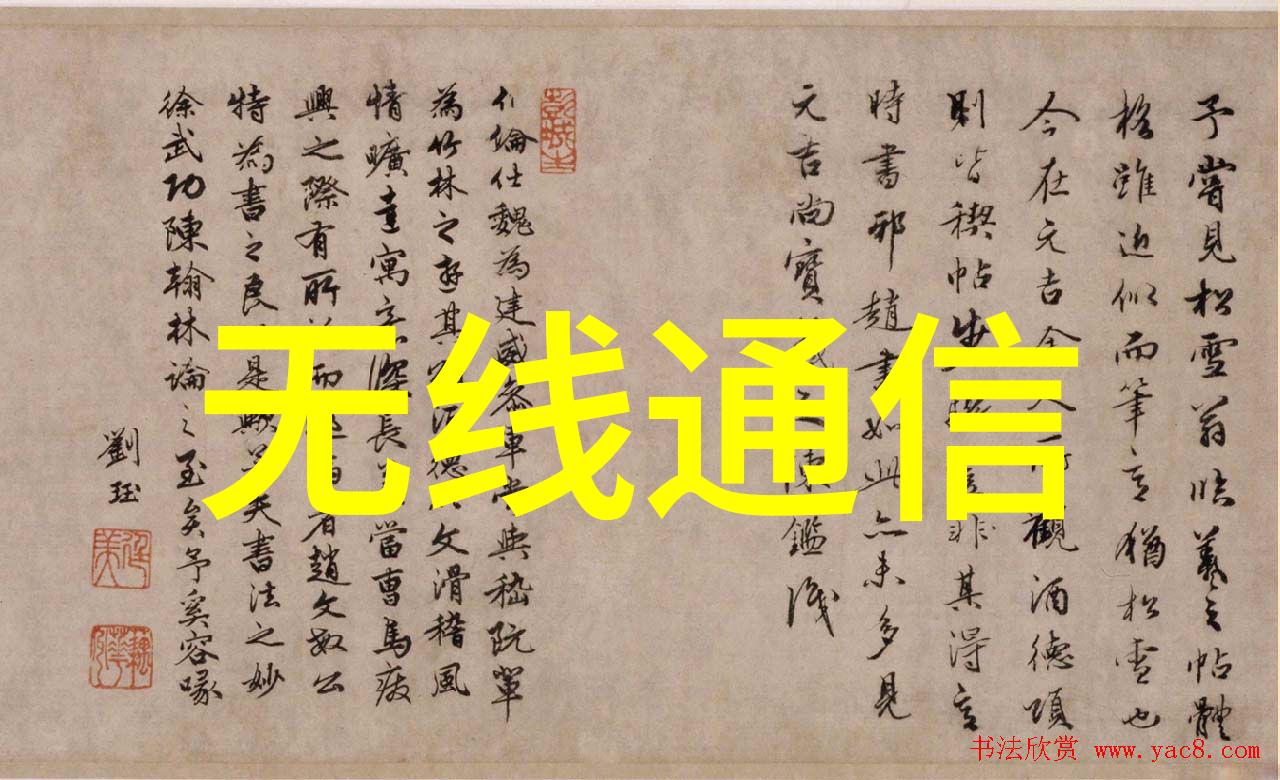 予嘗見松雪翁臨羲之帖體
格雖近似而筆意猶松雪也
今在元吉舍人所觀酒德頌
則皆稧帖中非其得意
時書邪趙書如此亦未多見
元吉尚寶鑑識
伶倫仕魏為建威參軍嘗與嵇阮輩
為竹林之遊其文滑稽風
情曠達寓意深長當曹馬
興之際有所而者趙文敏公
特為書之良是歟夫書法之妙
徐武功陳翰林論之至矣予奚容喙
劉珏
无线通信
书法欣赏 www.yac8.com